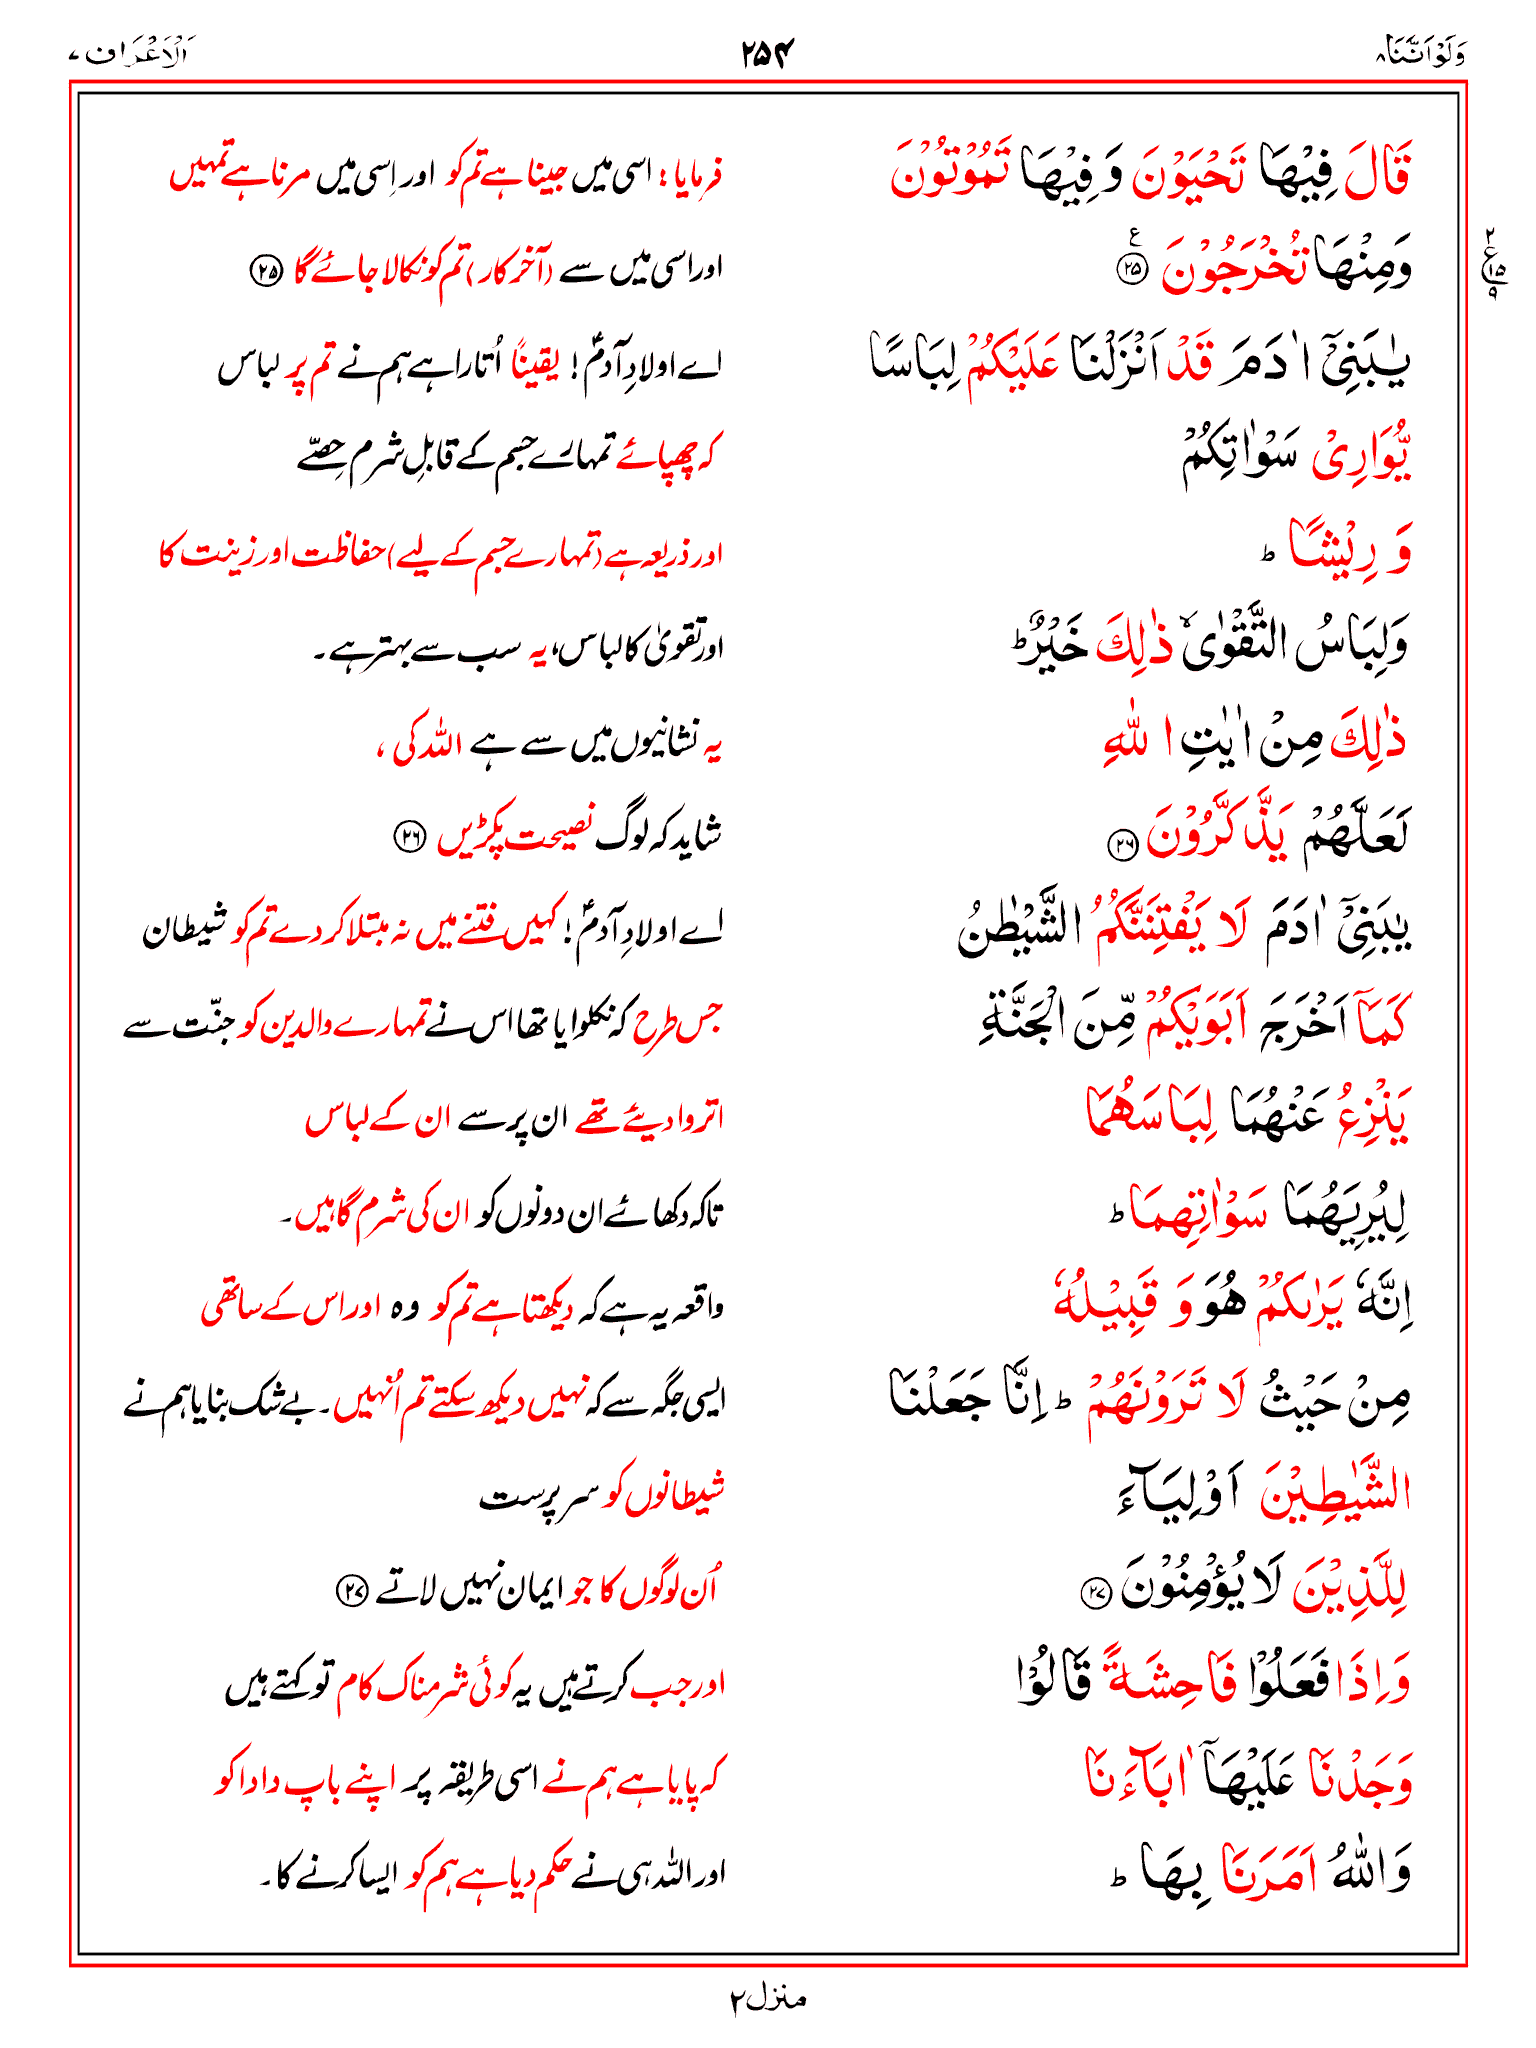 وَلَوْاَنَّنَا۸ ۲۵۴ اَلْاَعْرَاف۷
قَالَ فِيْهَا تَحْيَوْنَ وَفِيْهَا تَمُوْتُوْنَ فرمایا؛ اسی میں جینا ہے تم کو اور اِسی میں مرنا ہے تمہیں
وَمِنْهَا تُخْرَجُوْنَ ﴿۲۵﴾ ع اور اسی میں سے (آخر کار) تم کو نکالا جائے گا ﴿۲۵﴾
۲ ع ۱۵ ۹
يٰبَنِيْٓ اٰدَمَ قَدْ اَنْزَلْنَا عَلَيْكُمْ لِبَاسًا اے اولادِ آدمؑ! یقیناً اُتارا ہے ہم نے تم پر لباس
يُّوَارِيْ سَوْاٰتِكُمْ کہ چھپائے تمہارے جسم کے قابلِ شرم حِصّے
وَ رِيْشًا ؕ اور ذریعہ ہے (تمہارے جسم کے لیے) حفاظت اور زینت کا
وَلِبَاسُ التَّقْوٰىۙ ذٰلِكَ خَيْرٌؕ اور تقویٰ کا لباس، یہ سب سے بہتر ہے۔
ذٰلِكَ مِنْ اٰيٰتِ اللّٰهِ یہ نشانیوں میں سے ہے اللہ کی ،
لَعَلَّهُمْ يَذَّكَّرُوْنَ ﴿۲۶﴾ شاید کہ لوگ نصیحت پکڑیں ﴿۲۶﴾
يٰبَنِيْٓ اٰدَمَ لَا يَفْتِنَنَّكُمُ الشَّيْطٰنُ اے اولادِ آدمؑ! کہیں فتنے میں نہ مبتلا کر دے تم کو شیطان
كَمَآ اَخْرَجَ اَبَوَيْكُمْ مِّنَ الْجَنَّةِ جس طرح کہ نکلوایا تھا اس نے تمہارے والدین کو جنّت سے
يَنْزِعُ عَنْهُمَا لِبَاسَهُمَا اتروا دیئے تھے ان پر سے ان کے لباس
لِيُرِيَهُمَا سَوْاٰتِهِمَا ؕ تاکہ دکھائے ان دونوں کو ان کی شرم گاہیں۔
اِنَّهٗ يَرٰىكُمْ هُوَ وَ قَبِيْلُهٗ واقعہ یہ ہے کہ دیکھتا ہے تم کو وہ اور اس کے ساتھی
مِنْ حَيْثُ لَا تَرَوْنَهُمْ ؕ اِنَّا جَعَلْنَا ایسی جگہ سے کہ نہیں دیکھ سکتے تم اُنہیں۔ بے شک بنایا ہم نے
الشَّيٰطِيْنَ اَوْلِيَآءَ شیطانوں کو سرپرست
لِلَّذِيْنَ لَا يُؤْمِنُوْنَ ﴿۲۷﴾ اُن لوگوں کا جو ایمان نہیں لاتے ﴿۲۷﴾
وَاِذَا فَعَلُوْا فَاحِشَةً قَالُوْا اور جب کرتے ہیں یہ کوئی شرمناک کام تو کہتے ہیں
وَجَدْنَا عَلَيْهَآ اٰبَآءَنَا کہ پایا ہے ہم نے اسی طریقہ پر اپنے باپ دادا کو
وَاللّٰهُ اَمَرَنَا بِهَا ؕ اور اللہ ہی نے حکم دیا ہے ہم کو ایسا کرنے کا۔
منزل۲